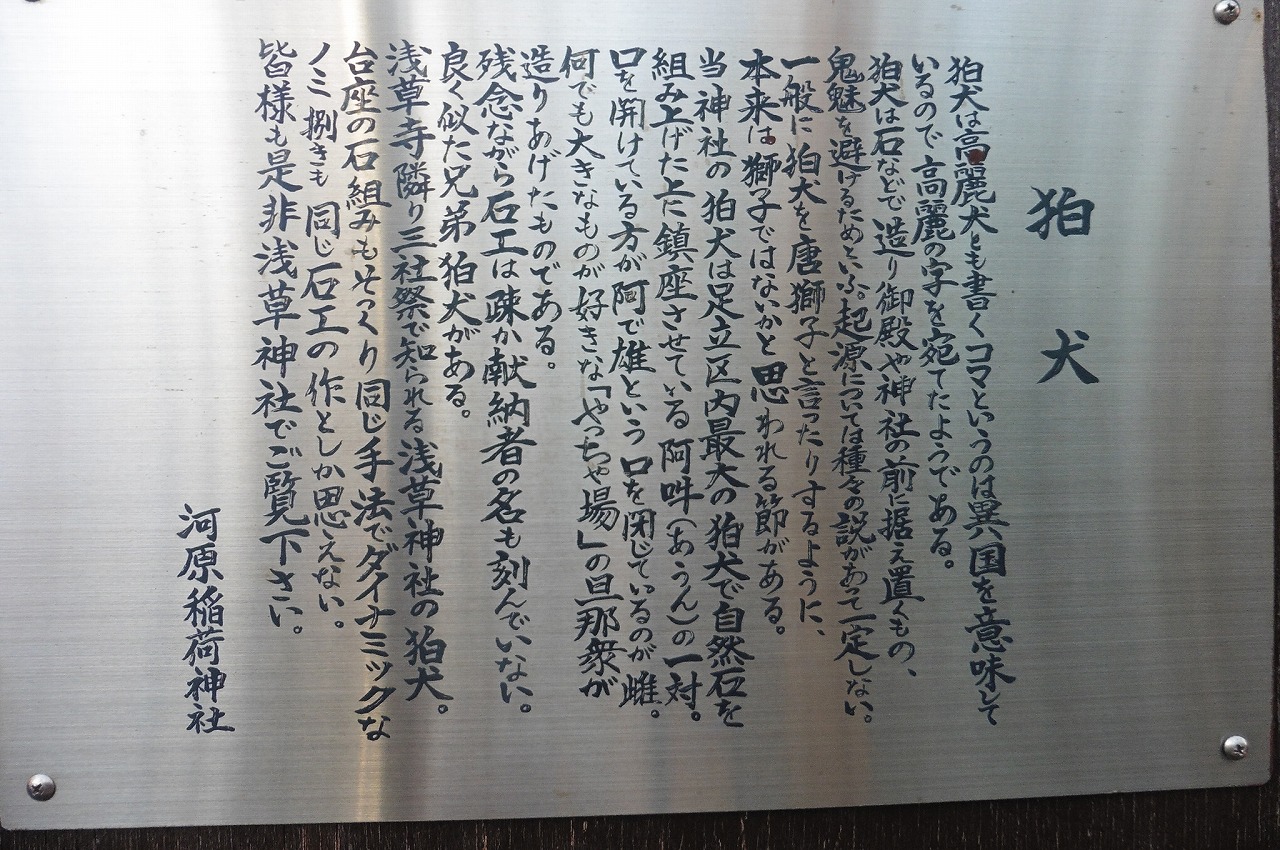 狛犬
狛犬は高麗犬とも書くコマというのは異国を意味して
いるので高麗の字を宛てたようである。
狛犬は石などで造り御殿や神社の前に据え置くもの、
鬼魅を避けるためといふ。起源については種々の説があって一定しない。
一般に狛犬を唐獅子と言ったりするように、
本来は獅子ではないかと思われる節がある。
当神社の狛犬は足立区内最大の狛犬で自然石を
組み上げた上に鎮座させている阿吽(あうん)の一対。
口を開けている方が阿で雄という口を閉じているのが雌。
何でも大きなものが好きな「やっちゃ場」の旦那衆が
造りあげたものである。
残念ながら石工は疎か献納者の名も刻んでいない。
良く似た兄弟狛犬がある。
浅草寺隣り三社祭で知られる浅草神社の狛犬。
台座の石組みもそっくり同じ手法でダイナミックな
ノミ捌きも同じ石工の作としか思えない。
皆様も是非浅草神社でご覧下さい。
河原稲荷神社